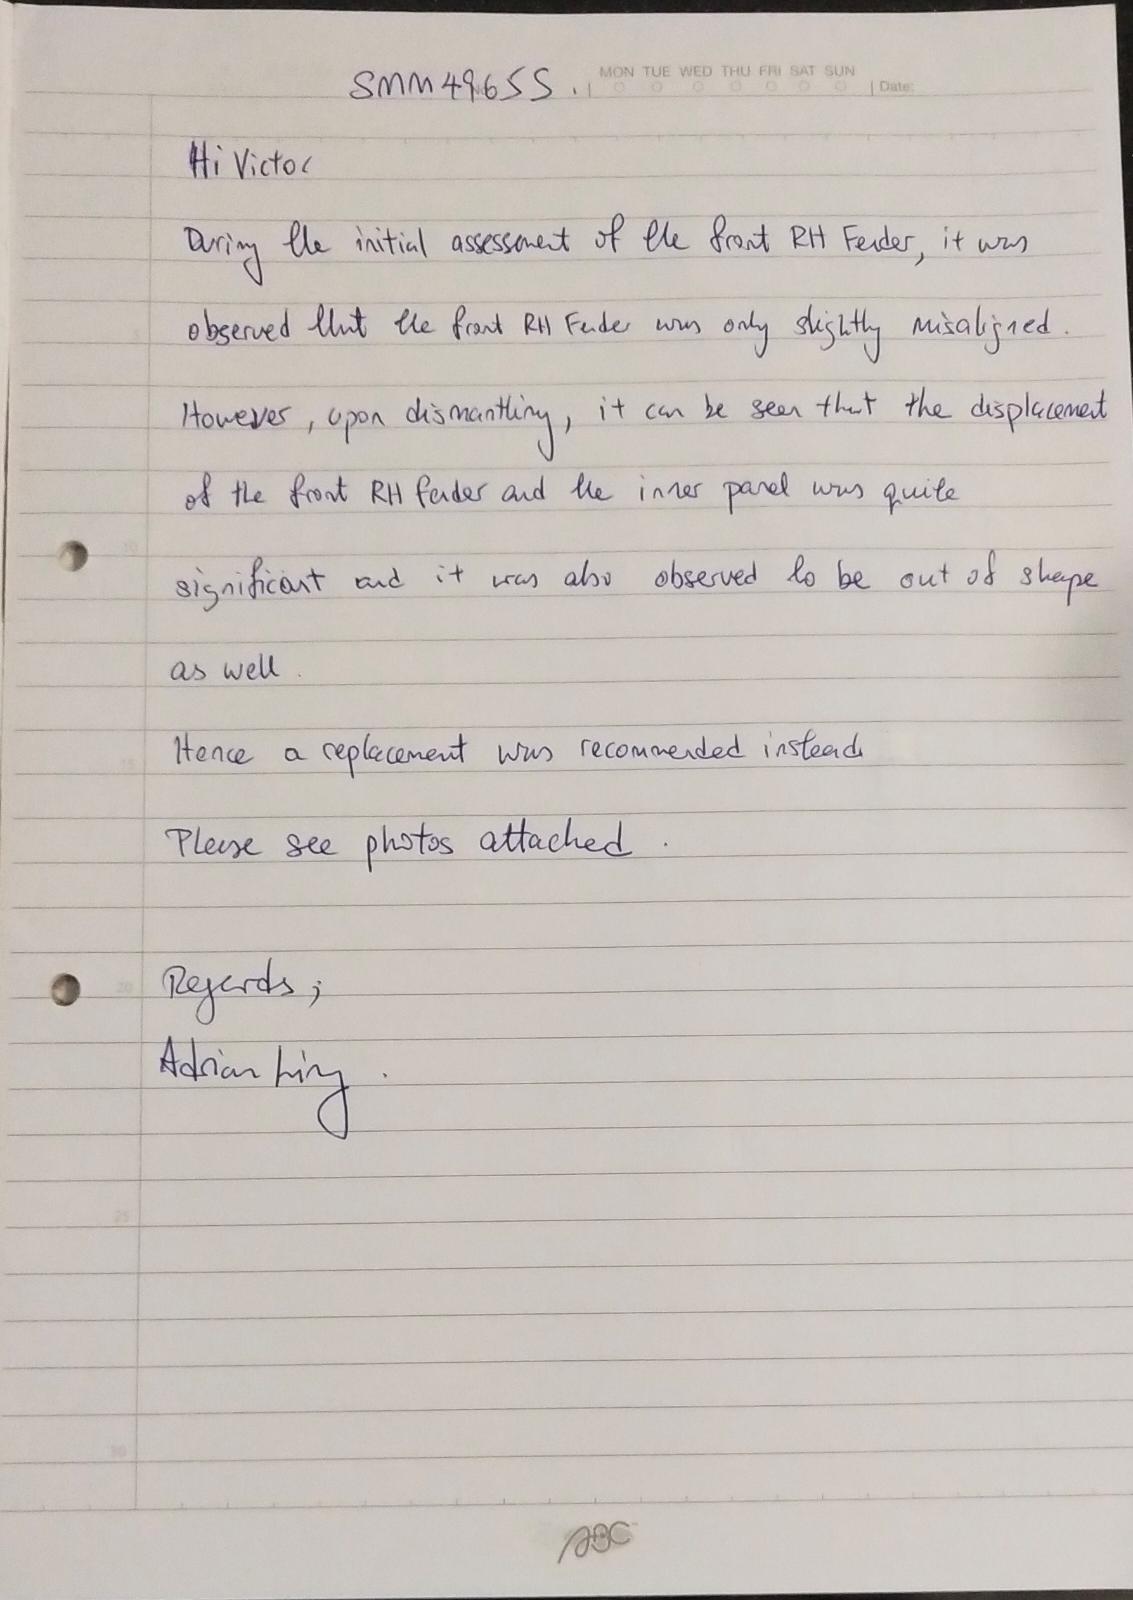 SMM4965S.
MON TUE WED THU FRI SAT SUN
Date:
Hi Victor
During the initial assessment of the front RH Fender, it was
observed that the front RH Fender was only slightly misaligned.
However, upon dismantling, it can be seen that the displacement
of the front RH fender and the inner panel was quite
significant and it was also observed to be out of shape
as well.
Hence a replacement was recommended instead
Please see photos attached.
Regards;
Adrian Ling.
ABC